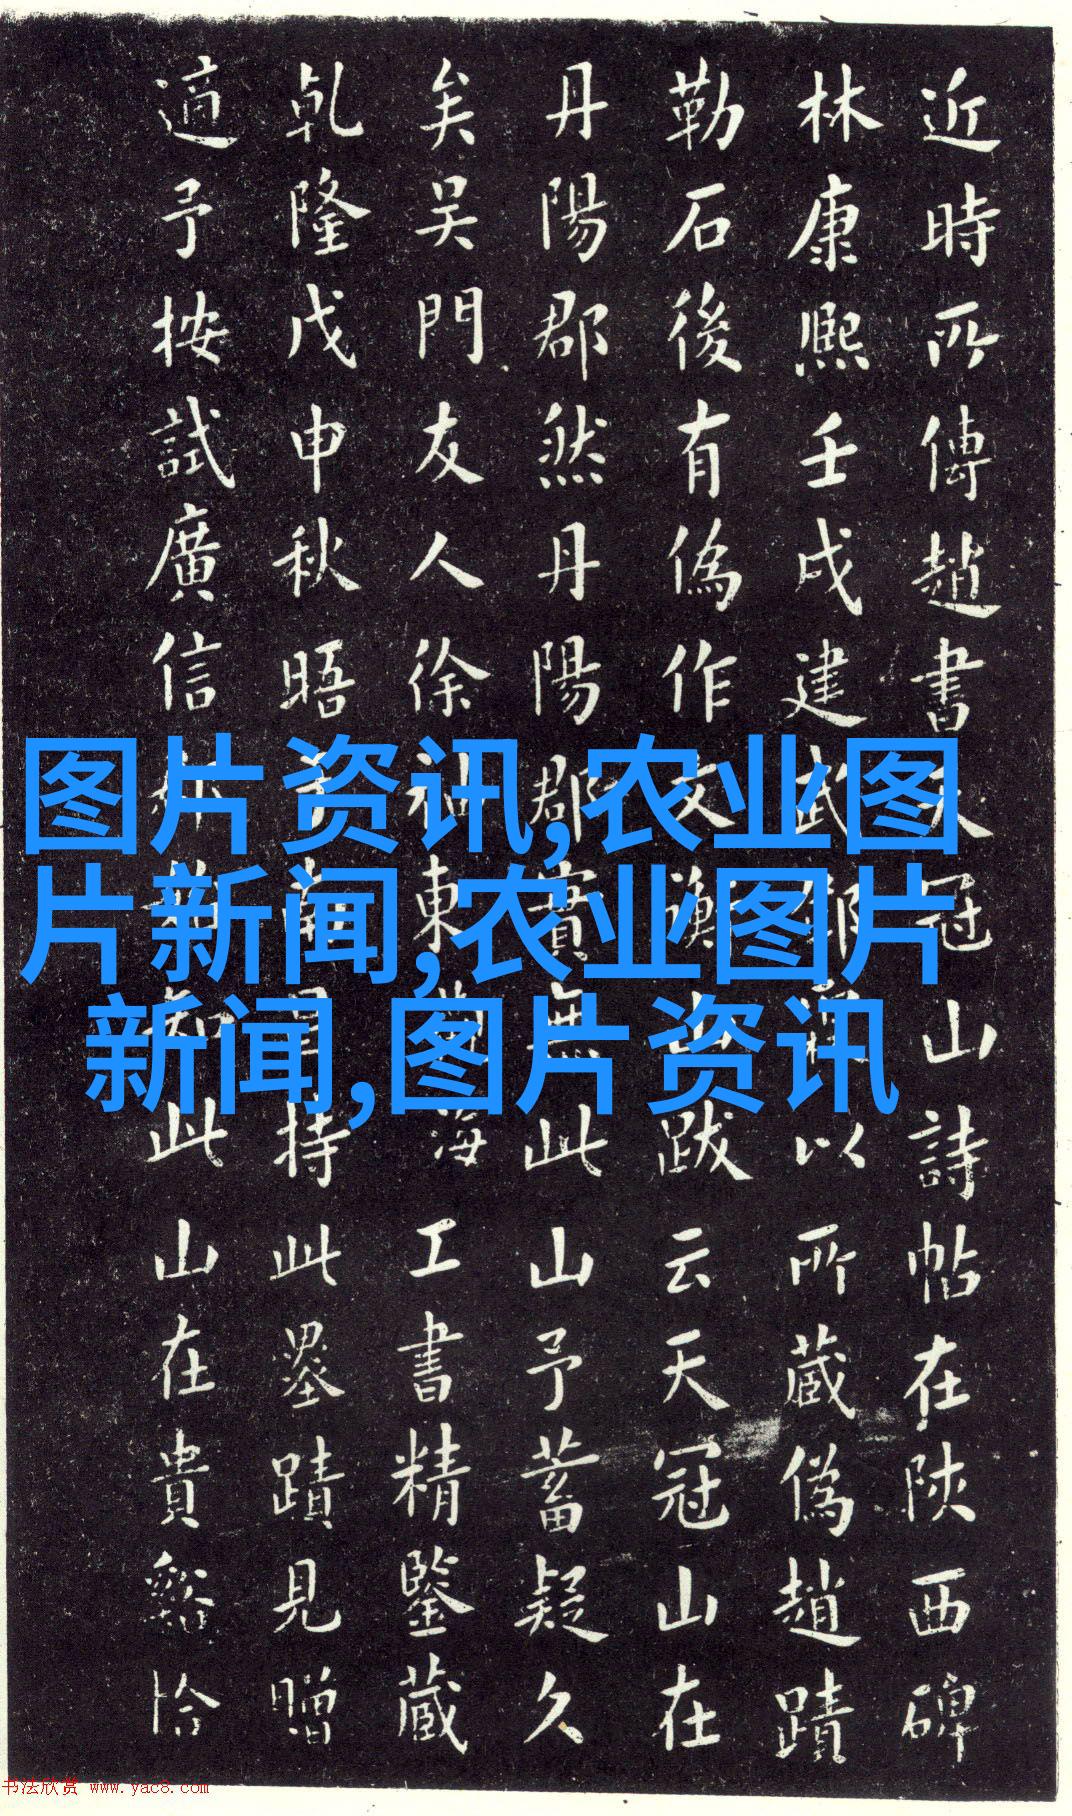 近時所傳趙書天冠山詩帖在陝西碑
林康熙壬戌建武以所藏偽趙蹟
勒石後有偽作文衡山跋云天冠山在
丹陽郡然丹陽郡實無此山予蓄疑久
矣吴門友人徐東海工書精鑒藏
乾隆戊申秋晤予南昌持此墨蹟見贈
適予按試廣信知此山在貴谿恰
图片资讯,农业图
片新闻,农业图片
新闻,图片资讯
书法欣赏 www.yac8.com